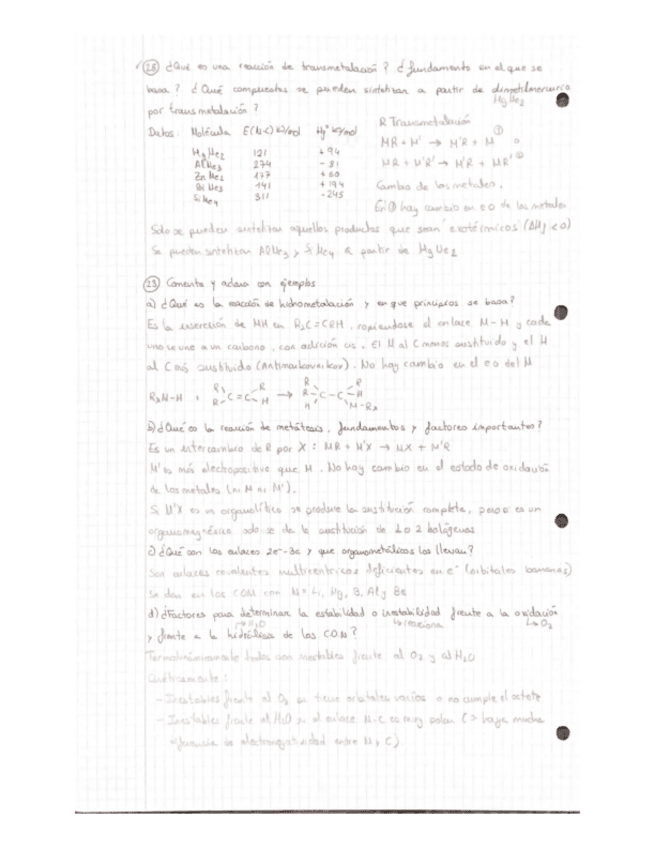 (28) ¿Qué es una reacción de transmetalación? ¿fundamento en el que se
basa? ¿Qué compuestos se pueden sintetizar a partir de dimetilmercurio
HgMe2
por transmetalación?
Datos: Molécula E(M-C) kJ/mol Hf° kJ/mol
HgMe2 121 +94
AlMe3 274 -81
ZnMe2 177 +50
BiMe3 141 +194
SiMe4 311 -245
R Transmetalación
MR + M' → M'R + M ①
MR + M'R' → M'R + MR' ②
Cambio de los metales.
En ① hay cambio en eo de los metales
Sólo se pueden sintetizar aquellos productos que sean exotérmicos (ΔHf<0)
Se pueden sintetizar AlMe3 y SiMe4 a partir de HgMe2
(29) Comenta y aclara con ejemplos
a) ¿Qué es la reacción de hidrometalación y en que principios se basa?
Es la inserción de MH en R2C=CRH, rompiendose el enlace M-H y cada
uno se une a un carbono, con adición cis. El M al C menos sustituido y el H
al C más sustituido (Antimarkovnikov). No hay cambio en el eo del M
RxM-H + R R C=C R H → R R H C-C R H M-Rx
b) ¿Qué es la reacción de metátesis, fundamentos y factores importantes?
Es un intercambio de R por X: MR + M'X → MX + M'R
M' es más electropositivo que M. No hay cambio en el estado de oxidación
de los metales (ni M ni M').
Si M'X es un organolítico se produce la sustitución completa, pero si es un
organomagnésico solo se da la sustitución de 1 o 2 halógenos
c) ¿Qué son los enlaces 2e-3c y que organometálicos los llevan?
Son enlaces covalentes multicentricos deficientes en e- (orbitales bananas)
Se dan en los COM con M= Li, Mg, B, Al y Be
d) ¿Factores para determinar la estabilidad o inestabilidad frente a la oxidación
→H2O ↳reacciona ↳O2
y frente a la hidrólisis de los COM?
Termodinámicamente todos son inestables frente al O2 y al H2O
Cinéticamente:
- Inestables frente al O2 si tiene orbitales vacíos o no cumple el octete
- Inestables frente al H2O si el enlace M-C es muy polar (→ haya mucha
diferencia de electronegatividad entre M y C)